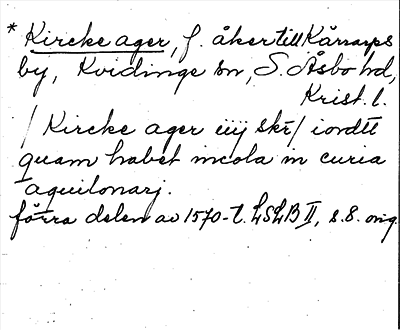 * Kircke ager, f. åker till Kärsarps
by, Kvidinge sn, S. Åsbo hd,
Krist. l.
/ Kircke ager iiij skr̄ / iordtt
quam habet incola in curia
aquilonarj.
förra delen av 1570-t. LSLB II, s. 8. orig.